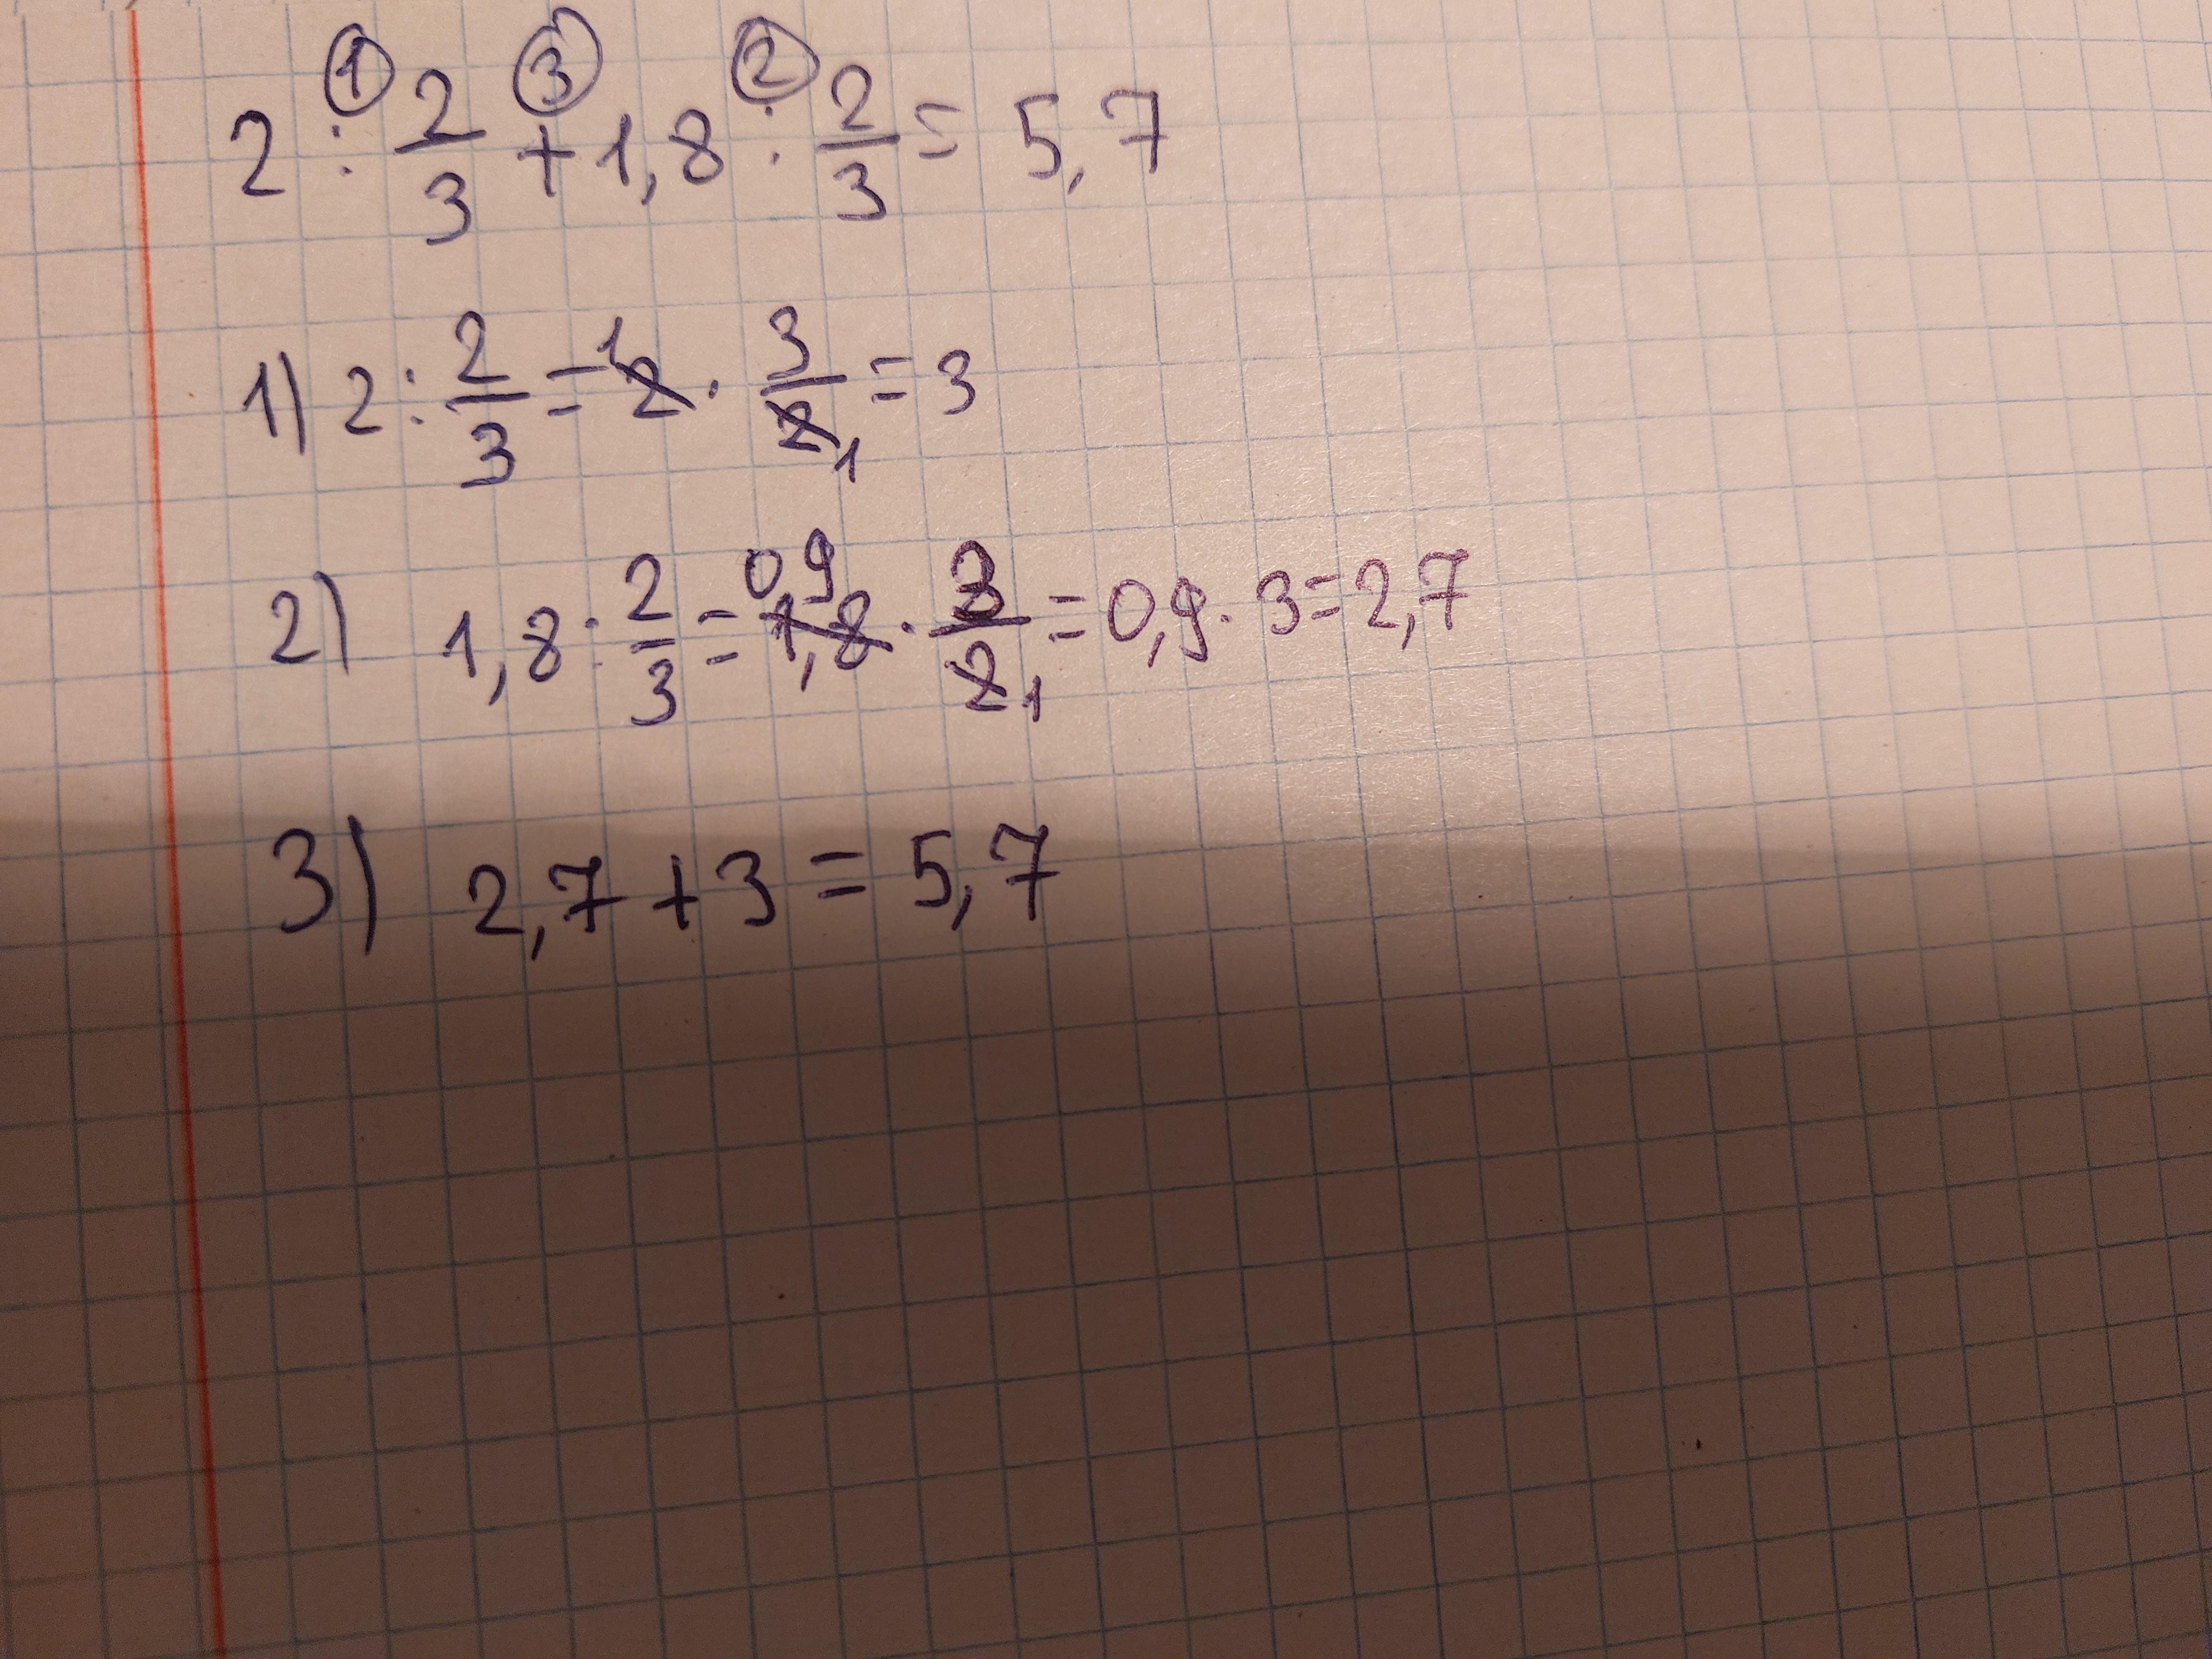 ① ③ ②
2 : 2/3 + 1,8 : 2/3 = 5,7
1) 2 : 2/3 = 2 1 · 3/2 1 = 3
2) 1,8 : 2/3 = 1,8 0,9 · 3/2 1 = 0,9 · 3 = 2,7
3) 2,7 + 3 = 5,7